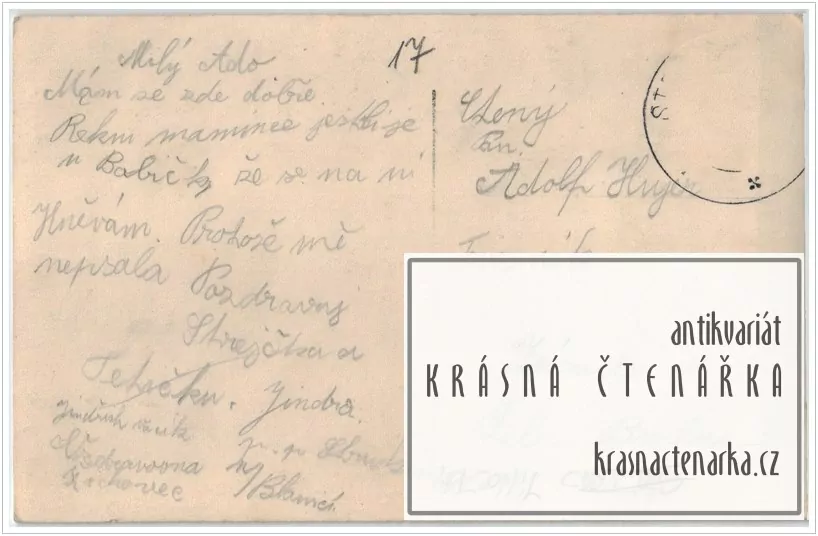 Milý Ado
Mám se zde dobře.
Rekni mamince jestli je
u Babičky, že se na ni
Hněvám. Protože mě
nepsala Pozdravuj
Strejčka a
Tetičku. Jindra.
Jindřich
17
Ctěný
Pan.
Adolf Hujer
ST.
antikvariát
KRÁSNÁ ČTENÁŘKA
krasnactenarka.cz